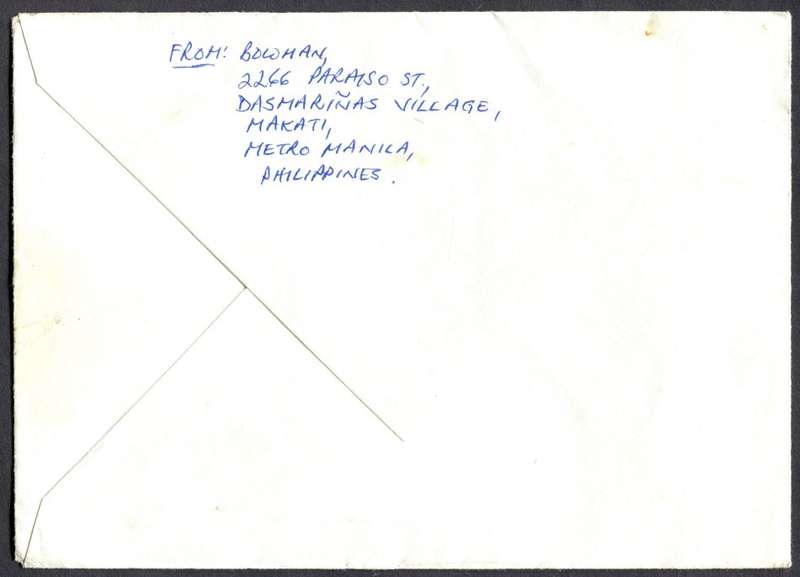 FROM: BOWMAN,
2266 PARAISO ST.,
DASMARIÑAS VILLAGE,
MAKATI,
METRO MANILA,
PHILIPPINES.